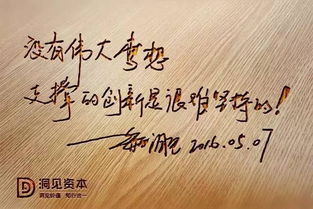 没有伟大梦想
支撑的创新是很难坚持的！
2016.05.07
洞见资本
洞见价值 知行合一